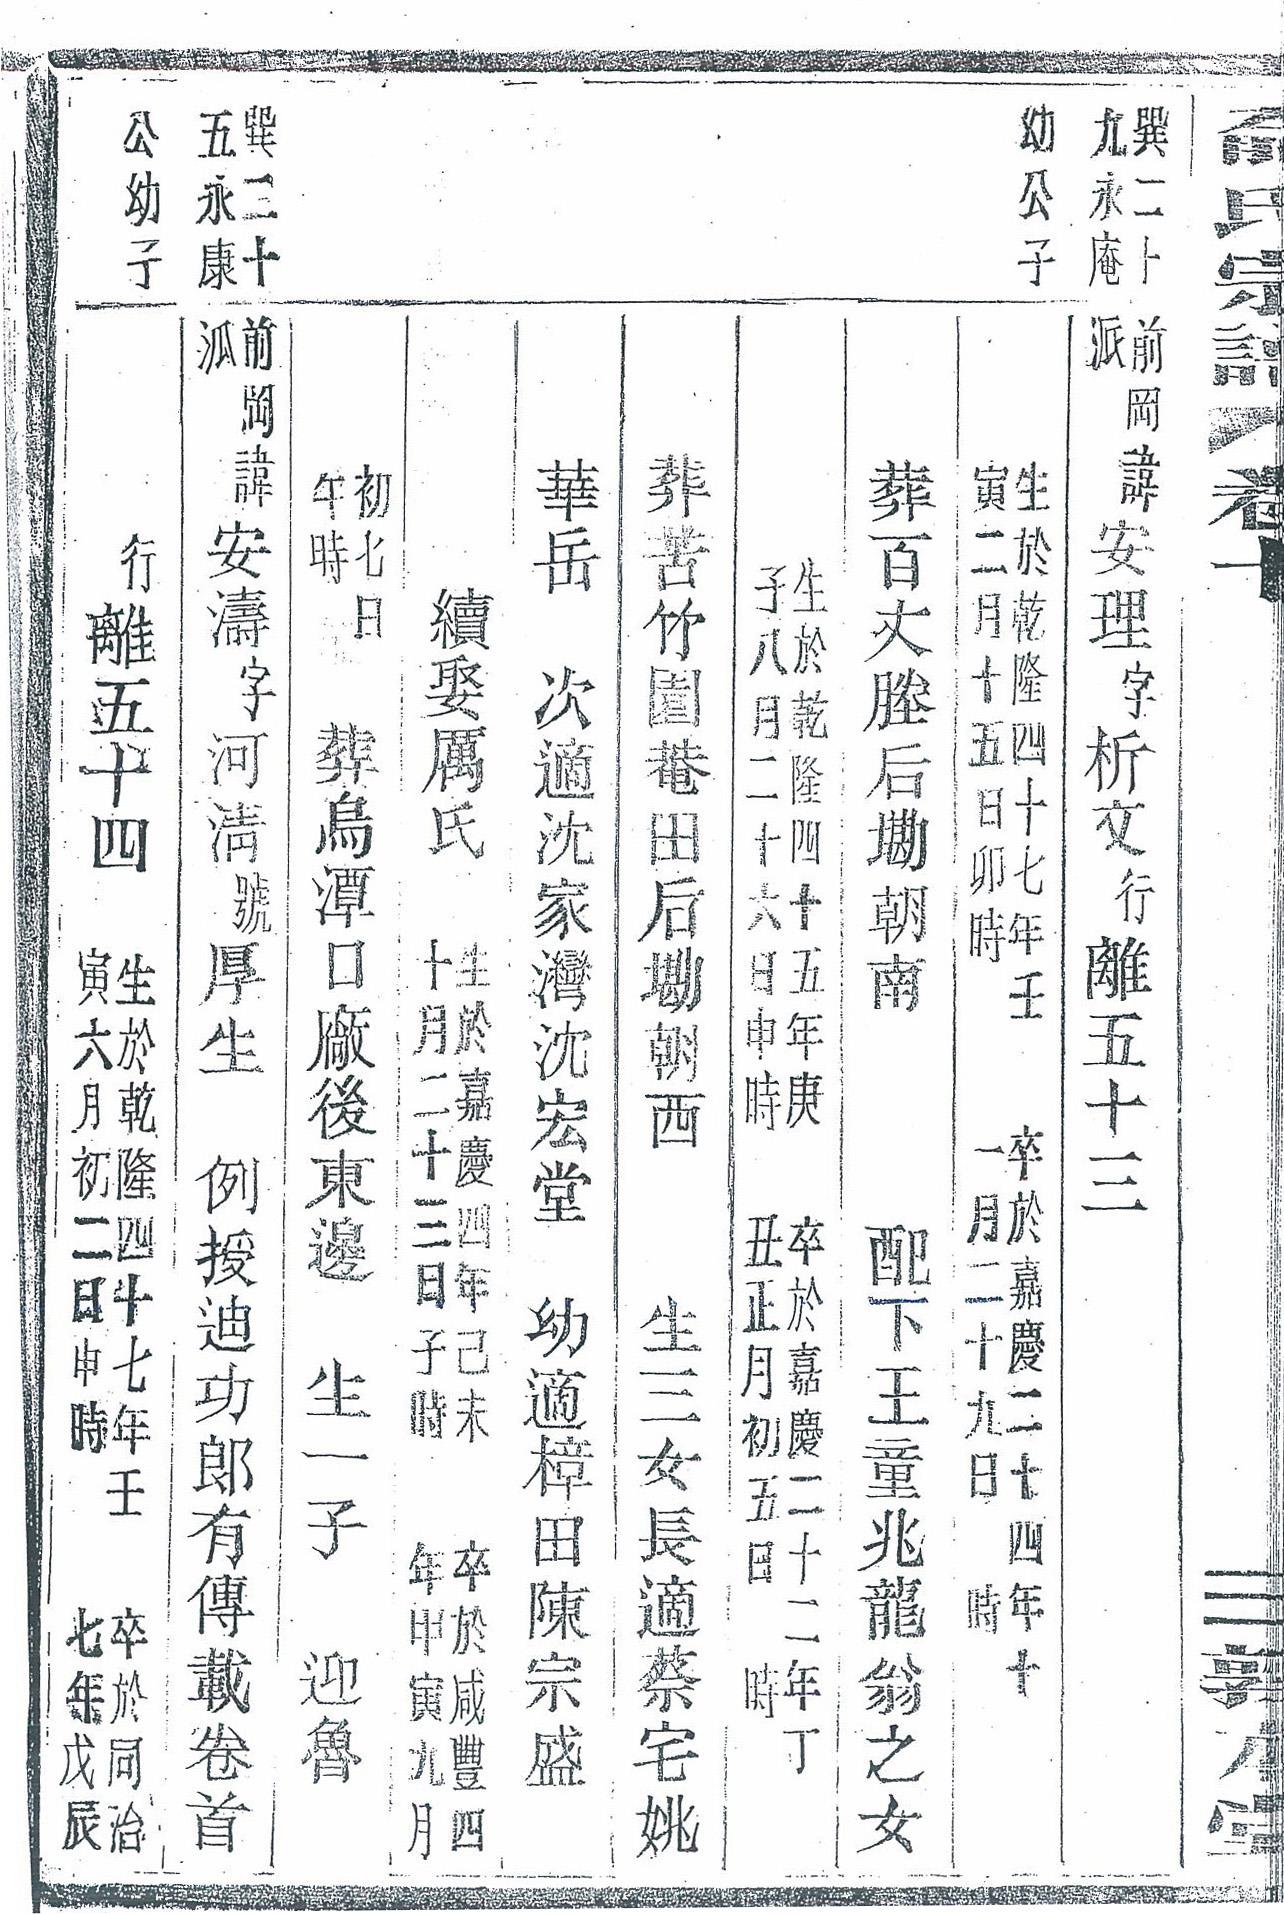 氏宗譜 卷十
巽二十
九永庵
幼公子
前岡諱安理字析文行離五十三
派
生於乾隆四十七年壬 卒於嘉慶二十四年十
寅二月十五日卯時 一月二十九日 時
葬百丈塍后塴朝南 配下王童兆龍翁之女
生於乾隆四十五年庚 卒於嘉慶二十二年丁
子八月二十六日申時 丑正月初五日 時
葬苦竹園菴田后塴朝西 生三女長適蔡宅姚
華岳 次適沈家灣沈宏堂 幼適樟田陳宗盛
續娶厲氏 生於嘉慶四年己未 卒於咸豐四
十月二十三日子時 年甲寅九月
初七日
午時
葬烏潭口廠後東邊 生一子 迎魯
巽三十
五永康
公幼子
前岡諱安濤字河淸號厚生 例授迪功郎有傳載卷首
派
行離五十四 生於乾隆四十七年壬 卒於同治
寅六月初二日申時 七年戊辰